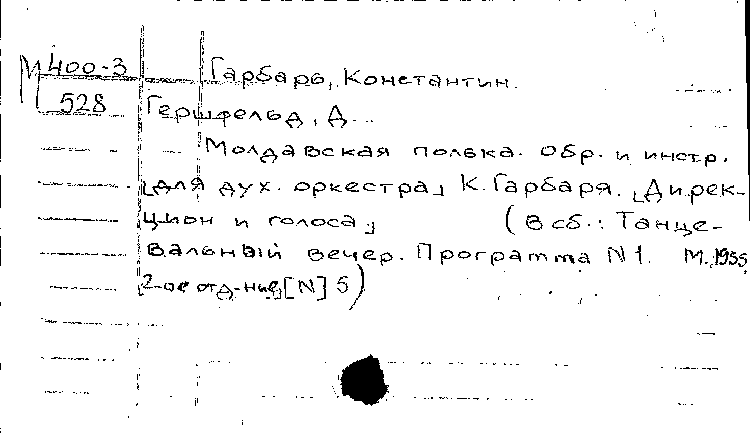 М 400-3 Гарбарь, Константин.
528 Гершфельд, Д...
Молдавская полька. Обр. и инстр.
[для дух. оркестра] К. Гарбаря. [Дирек-
цион и голоса] (В сб.: Танце-
вальный вечер. Программа N 1. М., 1955
2-ое отд-ние, [N] 5)